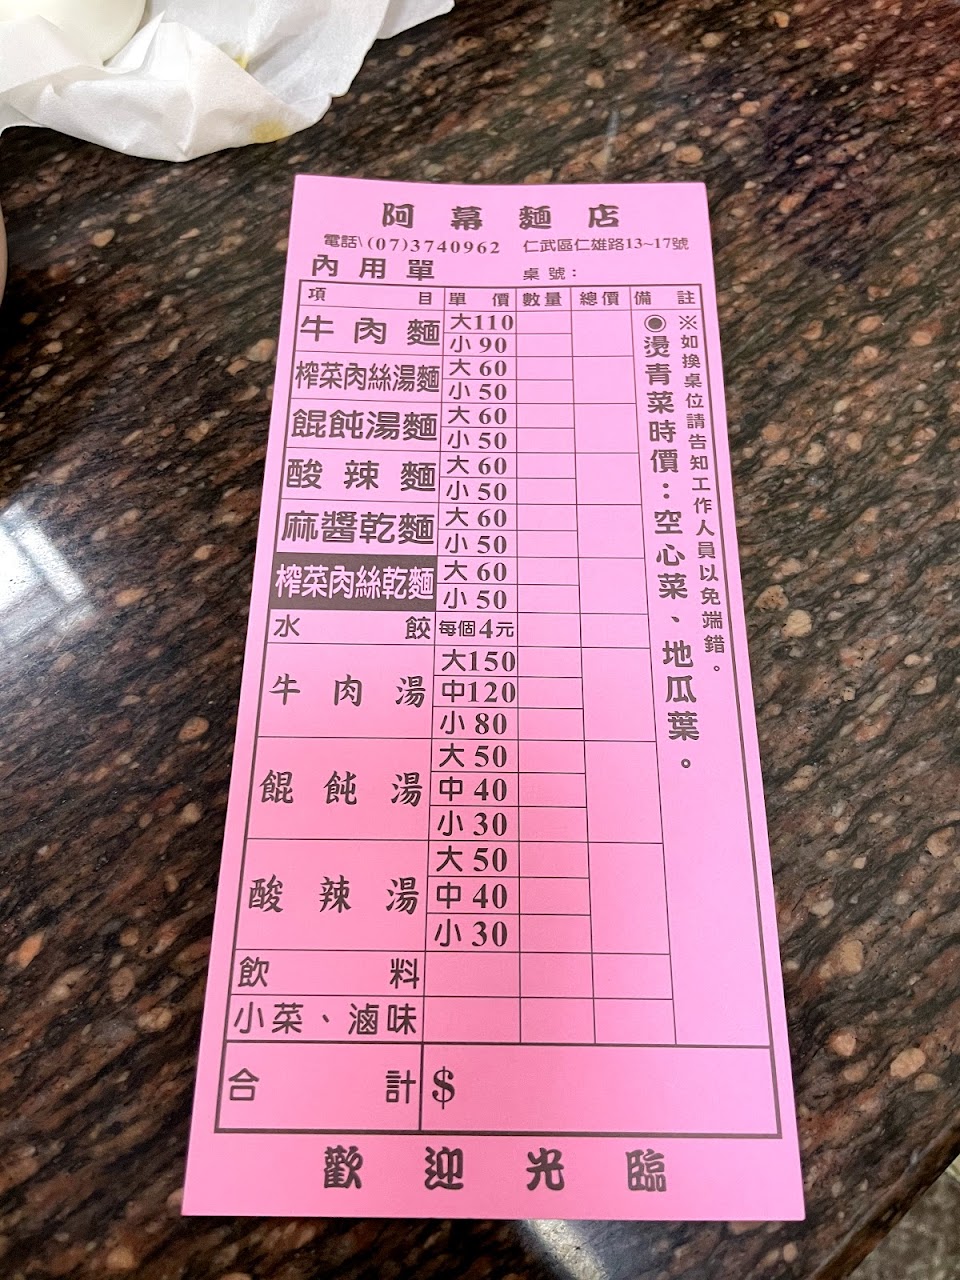 阿幕麵店
電話\(07)3740962 仁武區仁雄路13~17號
內用單 桌號：
項目 單價 數量 總價 備註
牛肉麵 大110
小90
榨菜肉絲湯麵 大60
小50
餛飩湯麵 大60
小50
酸辣麵 大60
小50
麻醬乾麵 大60
小50
榨菜肉絲乾麵 大60
小50
水餃 每個4元
牛肉湯 大150
中120
小80
餛飩湯 大50
中40
小30
酸辣湯 大50
中40
小30
飲料
小菜、滷味
※如換桌位請告知工作人員以免端錯。
◉燙青菜時價：空心菜、地瓜葉。
合計 $
歡迎光臨